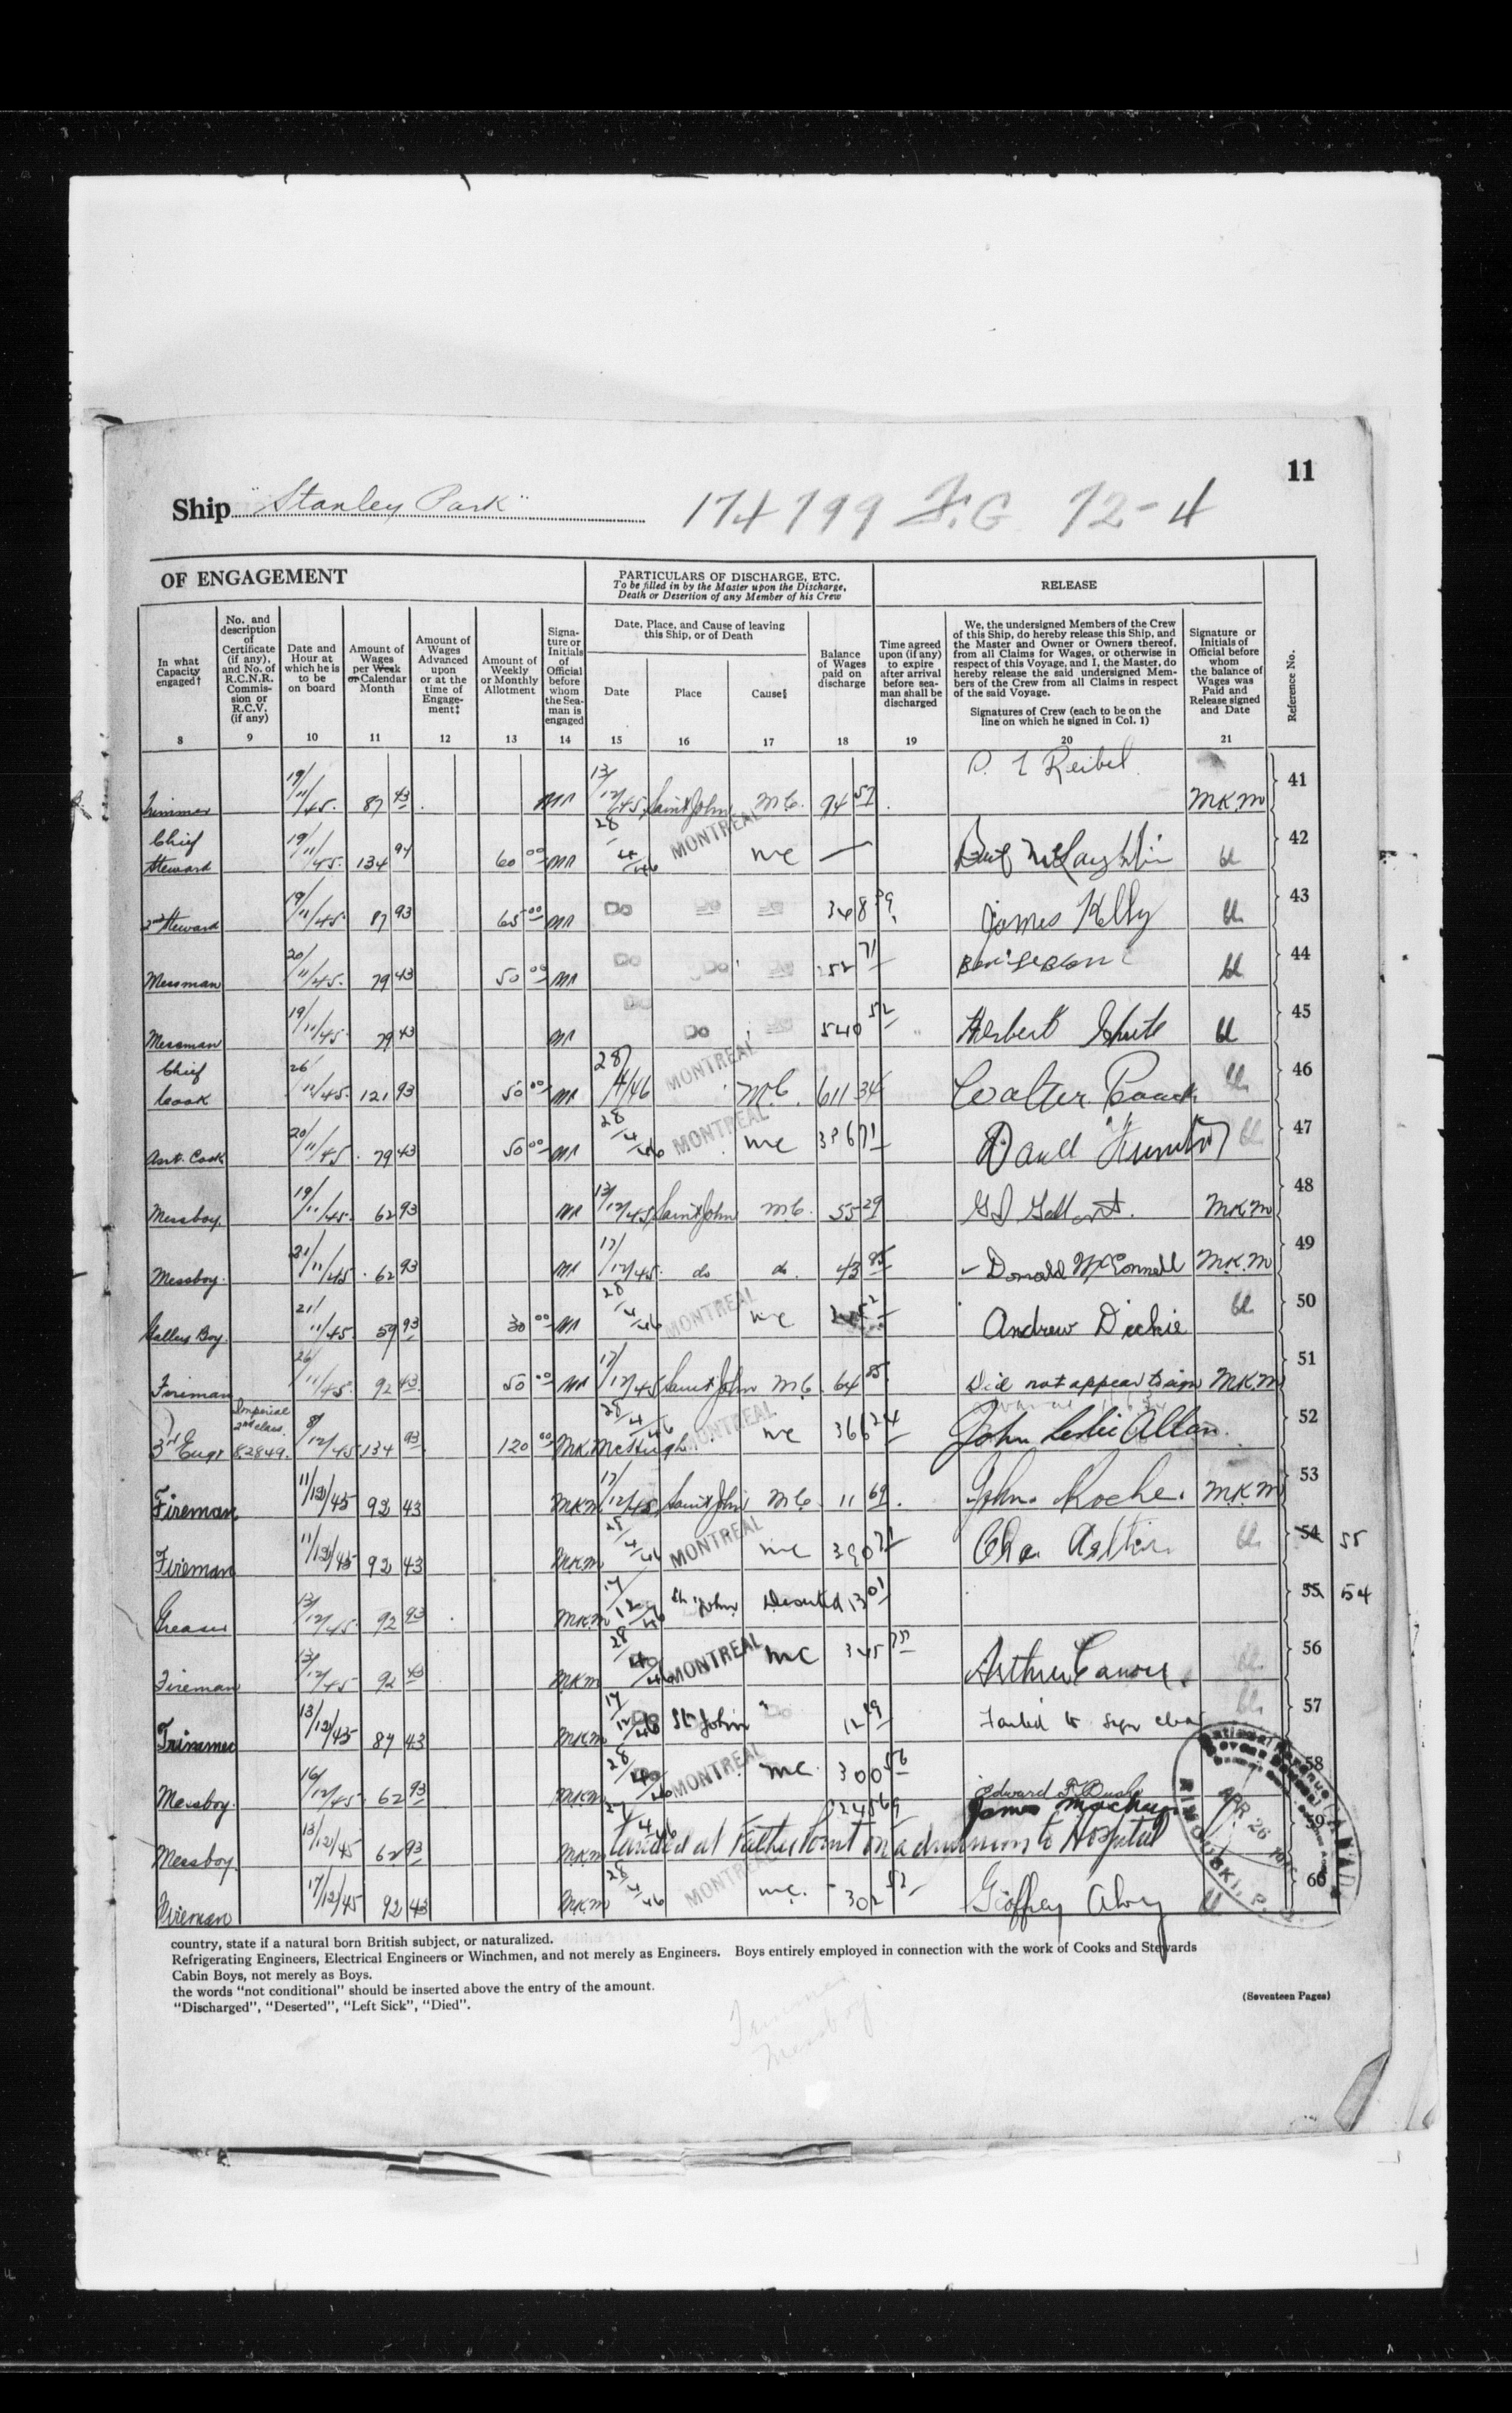 11
Ship "Stanley Park" 174799 F.G 72-4
OF ENGAGEMENT
PARTICULARS OF DISCHARGE, ETC.
To be filled in by the Master upon the Discharge,
Death or Desertion of any Member of his Crew
RELEASE
In what Capacity engaged†
No. and description of Certificate (if any), and No. of R.C.N.R. Commission or R.C.V. (if any)
Date and Hour at which he is to be on board
Amount of Wages per Week or Calendar Month
Amount of Wages Advanced upon or at the time of Engagement‡
Amount of Weekly or Monthly Allotment
Signature or Initials of Official before whom the Seaman is engaged
Date, Place, and Cause of leaving this Ship, or of Death
Date
Place
Cause§
Balance of Wages paid on discharge
Time agreed upon (if any) to expire after arrival before seaman shall be discharged
We, the undersigned Members of the Crew of this Ship, do hereby release this Ship, and the Master and Owner or Owners thereof, from all Claims for Wages, or otherwise in respect of this Voyage, and I, the Master, do hereby release the said undersigned Members of the Crew from all Claims in respect of the said Voyage.
Signatures of Crew (each to be on the line on which he signed in Col. 1)
Signature or Initials of Official before whom the balance of Wages was Paid and Release signed and Date
Reference No.
8 9 10 11 12 13 14 15 16 17 18 19 20 21
Trimmer 19/11/45. 87 43 13/12/45 Saint John M.C. 94 57 Reibel MKM 41
Chief Steward 19/11/45. 134 94 60 00 28/4/46 MONTREAL MC — McLaughlin 42
2nd Steward 19/11/45. 87 93 65 00 Do Do Do 348 James Kelly 43
Messman 20/11/45. 79 43 50 00 Do Do Do 252 71 44
Messman 19/11/45. 79 43 Do Do Do 540 52 Herbert 45
Chief Cook 26/11/45. 121 93 50 00 28/4/46 MONTREAL M.C. 611 34 Walter 46
Asst. Cook 20/11/45. 79 43 50 00 28/4/46 MONTREAL MC 71 47
Messboy. 19/11/45. 62 93 13/12/45 Saint John M.C. 55 29 MKM 48
Messboy. 21/11/45. 62 93 17/12/45. do do. 43 95 Donald McConnell M.K.M 49
Galley Boy. 21/11/45. 59 93 30 00 28/4/46 MONTREAL MC Andrew Dickie 50
Fireman 26/11/45. 92 43 50 00 17/12/45 Saint John M.C. 64 85 Did not appear to sign M.K.M 51
3rd Engr Imperial 2nd class. 82849. 8/12/45 134 93 120 00 M.K. McHugh 28/4/46 MONTREAL MC 366 24 John Leslie Allan. 52
Fireman 11/12/45 92 43 MKM 17/12/45 Saint John M.C. 11 69 John Roche. M.K.M 53
Fireman 11/12/45 92 43 MKM 28/4/46 MONTREAL MC 390 71 Chas. 54 55
Greaser 13/12/45. 92 93 MKM 17/12 St. John Deserted 13 01 55 54
Fireman 13/12/45 92 43 MKM 28/4/46 MONTREAL MC 345 Arthur 56
Trimmer 13/12/45 87 43 MKM 17/12 St. John " 12 19 Failed to sign clear 57
Messboy. 16/12/45. 62 93 MKM 28/4/46 MONTREAL MC. 300 56 Edward F. 58
Messboy 13/12/45 62 93 MKM 27/4/46 Landed at Father Point on admission to Hospital James 59
Fireman 17/12/45 92 43 MKM 28/4/46 MONTREAL MC. 302 52 60
APR 26
RIMOUSKI, P. Q.
country, state if a natural born British subject, or naturalized.
Refrigerating Engineers, Electrical Engineers or Winchmen, and not merely as Engineers. Boys entirely employed in connection with the work of Cooks and Stewards
Cabin Boys, not merely as Boys.
the words "not conditional" should be inserted above the entry of the amount.
"Discharged", "Deserted", "Left Sick", "Died".
(Seventeen Pages)
Trimmer
Messboy